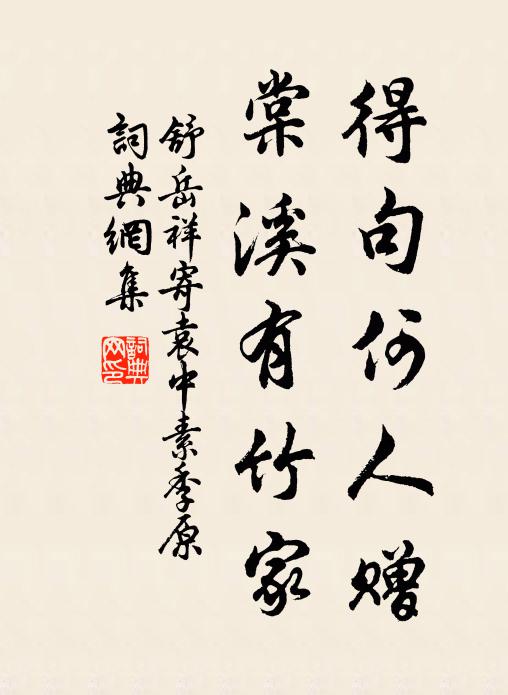 得句何人赠
棠溪有竹家
舒岳祥寄袁中素季原
詞典網集
詞典
网印